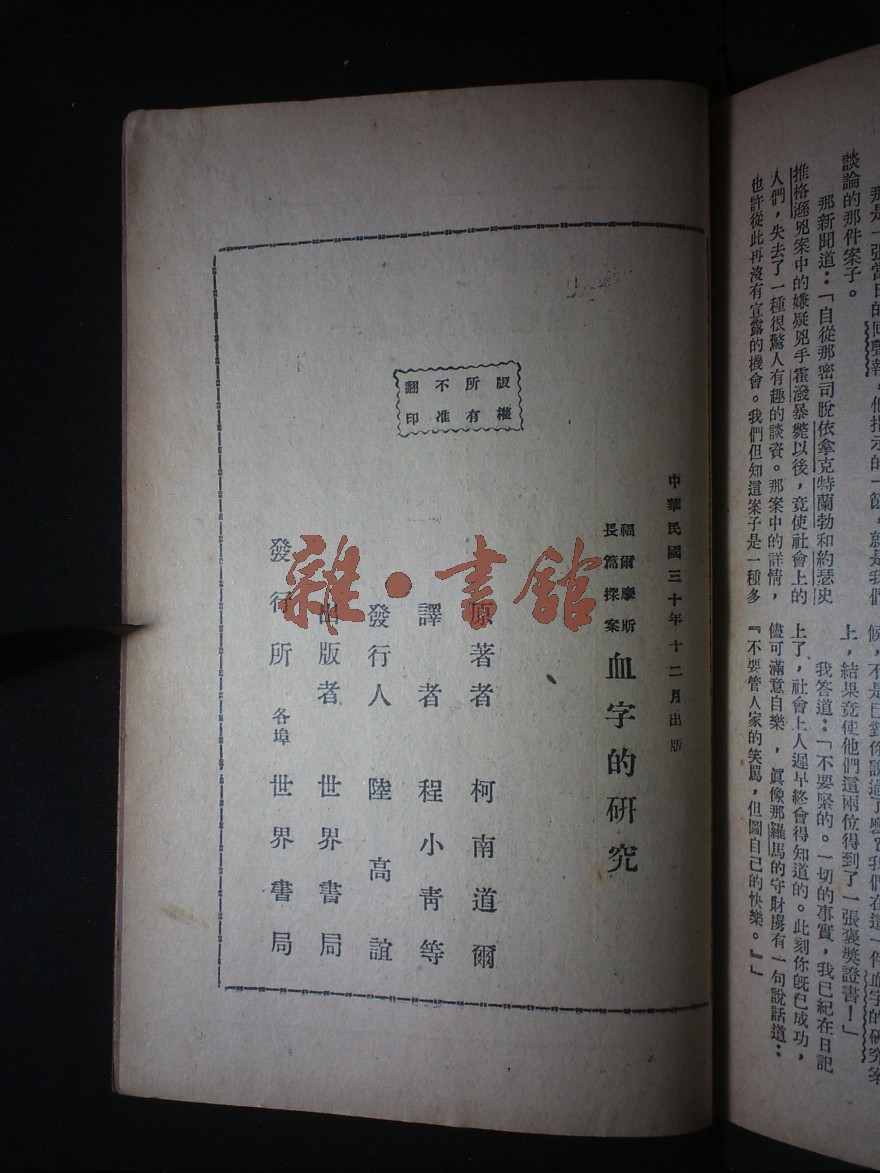 那是一張當日的回聲報，他指示的一節，就是我們
談論的那件案子。
那新聞道：「自從那密司脫依拿克特蘭勃和約瑟史
推格遜兇案中的嫌疑兇手霍潑暴斃以後，竟使社會上的
人們，失去了一種很驚人有趣的談資。那案中的詳情，
也許從此再沒有宣露的機會。我們但知這案子是一種多
候，不是已對你說過了麼？我們在這一件血字的研究案
上，結果竟使他們這兩位得到了一張褒獎證書！」
我答道：「不要緊的。一切的事實，我已紀在日記
上了，社會上人遲早終會得知道的。此刻你旣已成功，
儘可滿意自樂，眞像那羅馬的守財虜有一句說話道：
『不要管人家的笑罵，但圖自己的快樂。』」
中華民國三十年十二月出版
福爾摩斯
長篇探案
血字的研究
版權
所有
不准
翻印
原著者 柯南道爾
譯者 程小青等
發行人 陸高誼
出版者 世界書局
發行所 各埠 世界書局
雜·書館